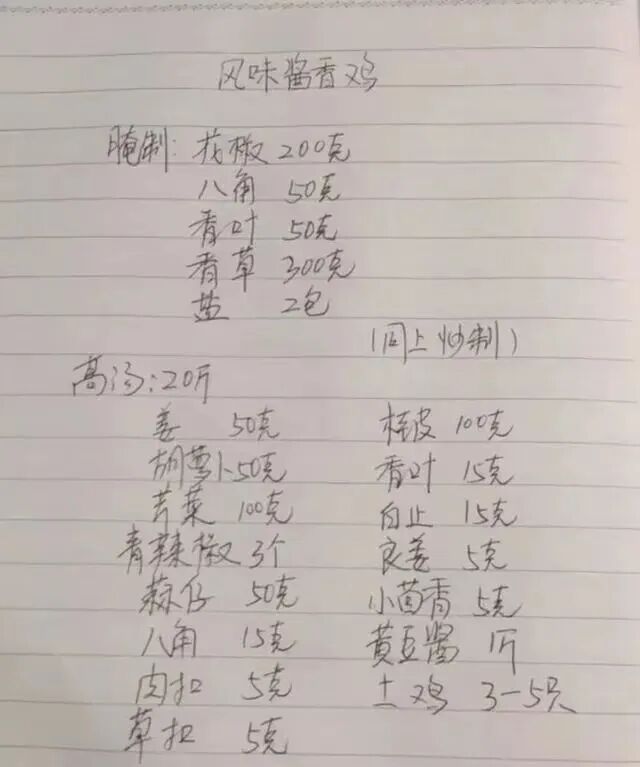 风味酱香鸡
腌制: 花椒 200克
八角 50克
香叶 50克
香草 300克
盐 2包
(同上炒制)
高汤: 20斤
姜 50克
胡萝卜 50克
芹菜 100克
青辣椒 3个
蒜仔 50克
八角 15克
肉扣 5克
草扣 5克
桂皮 100克
香叶 15克
白止 15克
良姜 5克
小茴香 5克
黄豆酱 1斤
土鸡 3-5只